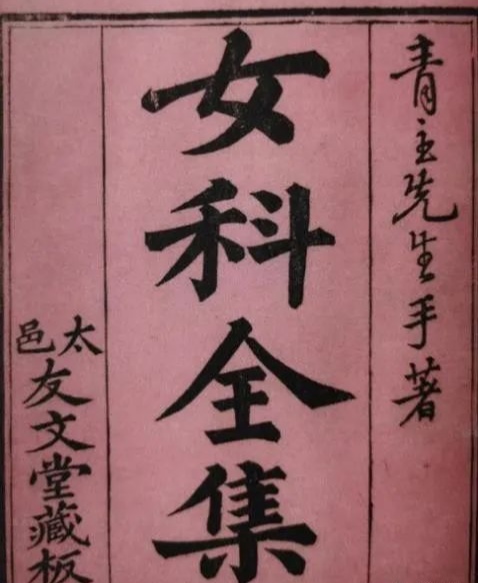 青主先生手著
女科全集
太邑
友文堂藏板